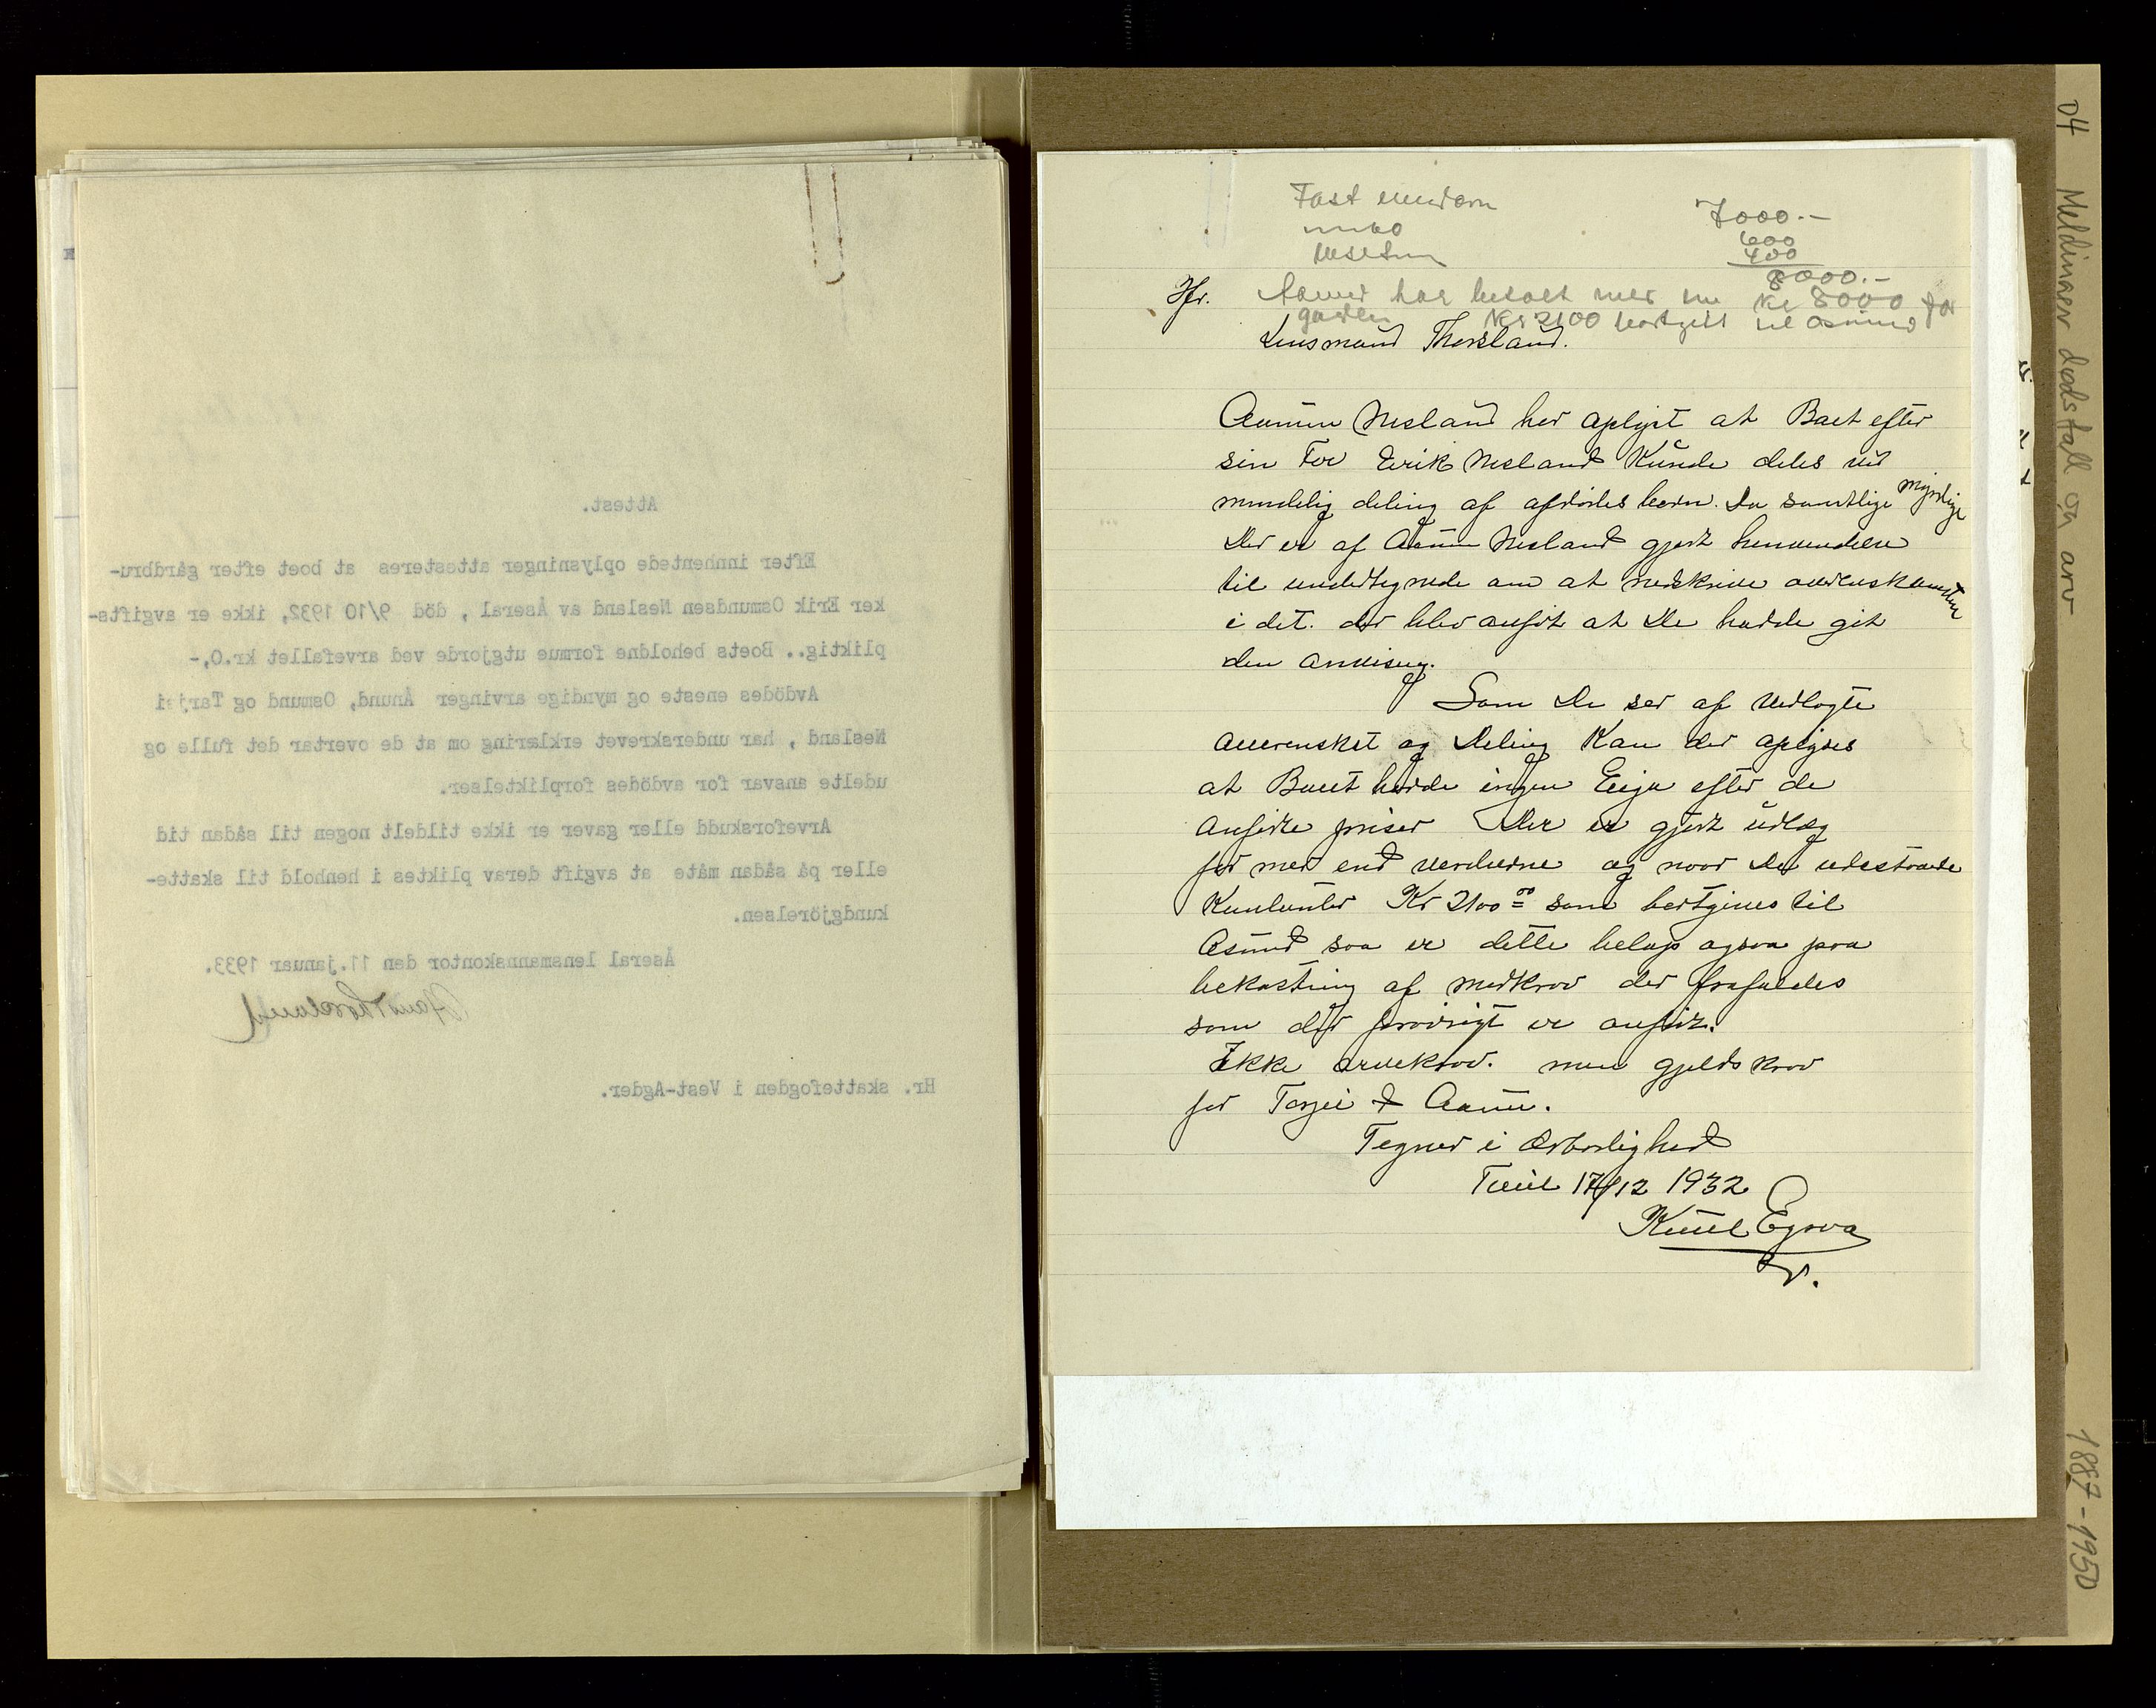 Attest.
Efter innhentede oplysninger attesteres at boet efter gårdbru-
ker Erik Osmundsen Nesland av Åseral , död 9/10 1932, ikke er avgifts-
pliktig.. Boets beholdne formue utgjorde ved arvefallet kr.0,-
Avdödes eneste og myndige arvinger Ånund, Osmund og Tarjei
Nesland , har underskrevet erklæring om at de overtar det fulle og
udelte ansvar for avdödes forpliktelser.
Arveforskudd eller gaver er ikke tildelt nogen til sådan tid
eller på sådan måte at avgift derav pliktes i henhold til skatte-
kundgjörelsen.
Åseral lensmannskontor den 11.januar 1933.
Thorsland
Hr. skattefogden i Vest-Agder.
Fast eiendom 7000.-
innbo 600
400
8000.-
Hr. har betalt mer enn kr 8000 for
garden Kr 2100 bortgitt til Åsmund
Lensmand Thorsland.
Aanun Nesland har oplyst at Boet efter
sin Far Erik Nesland Kunde deles ved
mindelig deling af afdödes börn. Da samtlige myndige
Der er af Aanun Nesland gjort henvendelse
til undertegnede om at nedskrive overenskomsten
i det. der blev anfört at De hadde git
den anvisning.
Som De ser af vedlagte
overenskst og Deling Kan der oplyses
at Boet hadde ingen Eige efter de
anförte priser Der er gjort udlæg
for mer end verdierne og naar De udestaaende
Kontanter Kr 2100 00 som bortgives til
Asmund saa er dette belöp ogsaa paa
bekostning af medkrav der frafaldes
som der forövrigt er anfört.
Ikke arvekrav. men gjeldskrav
for Tarjei & Aanun.
Tegner i Ærbödighed
17/12 1932
Knut Egsraa
04 Meldinger dødsfall og arv
1887-1950